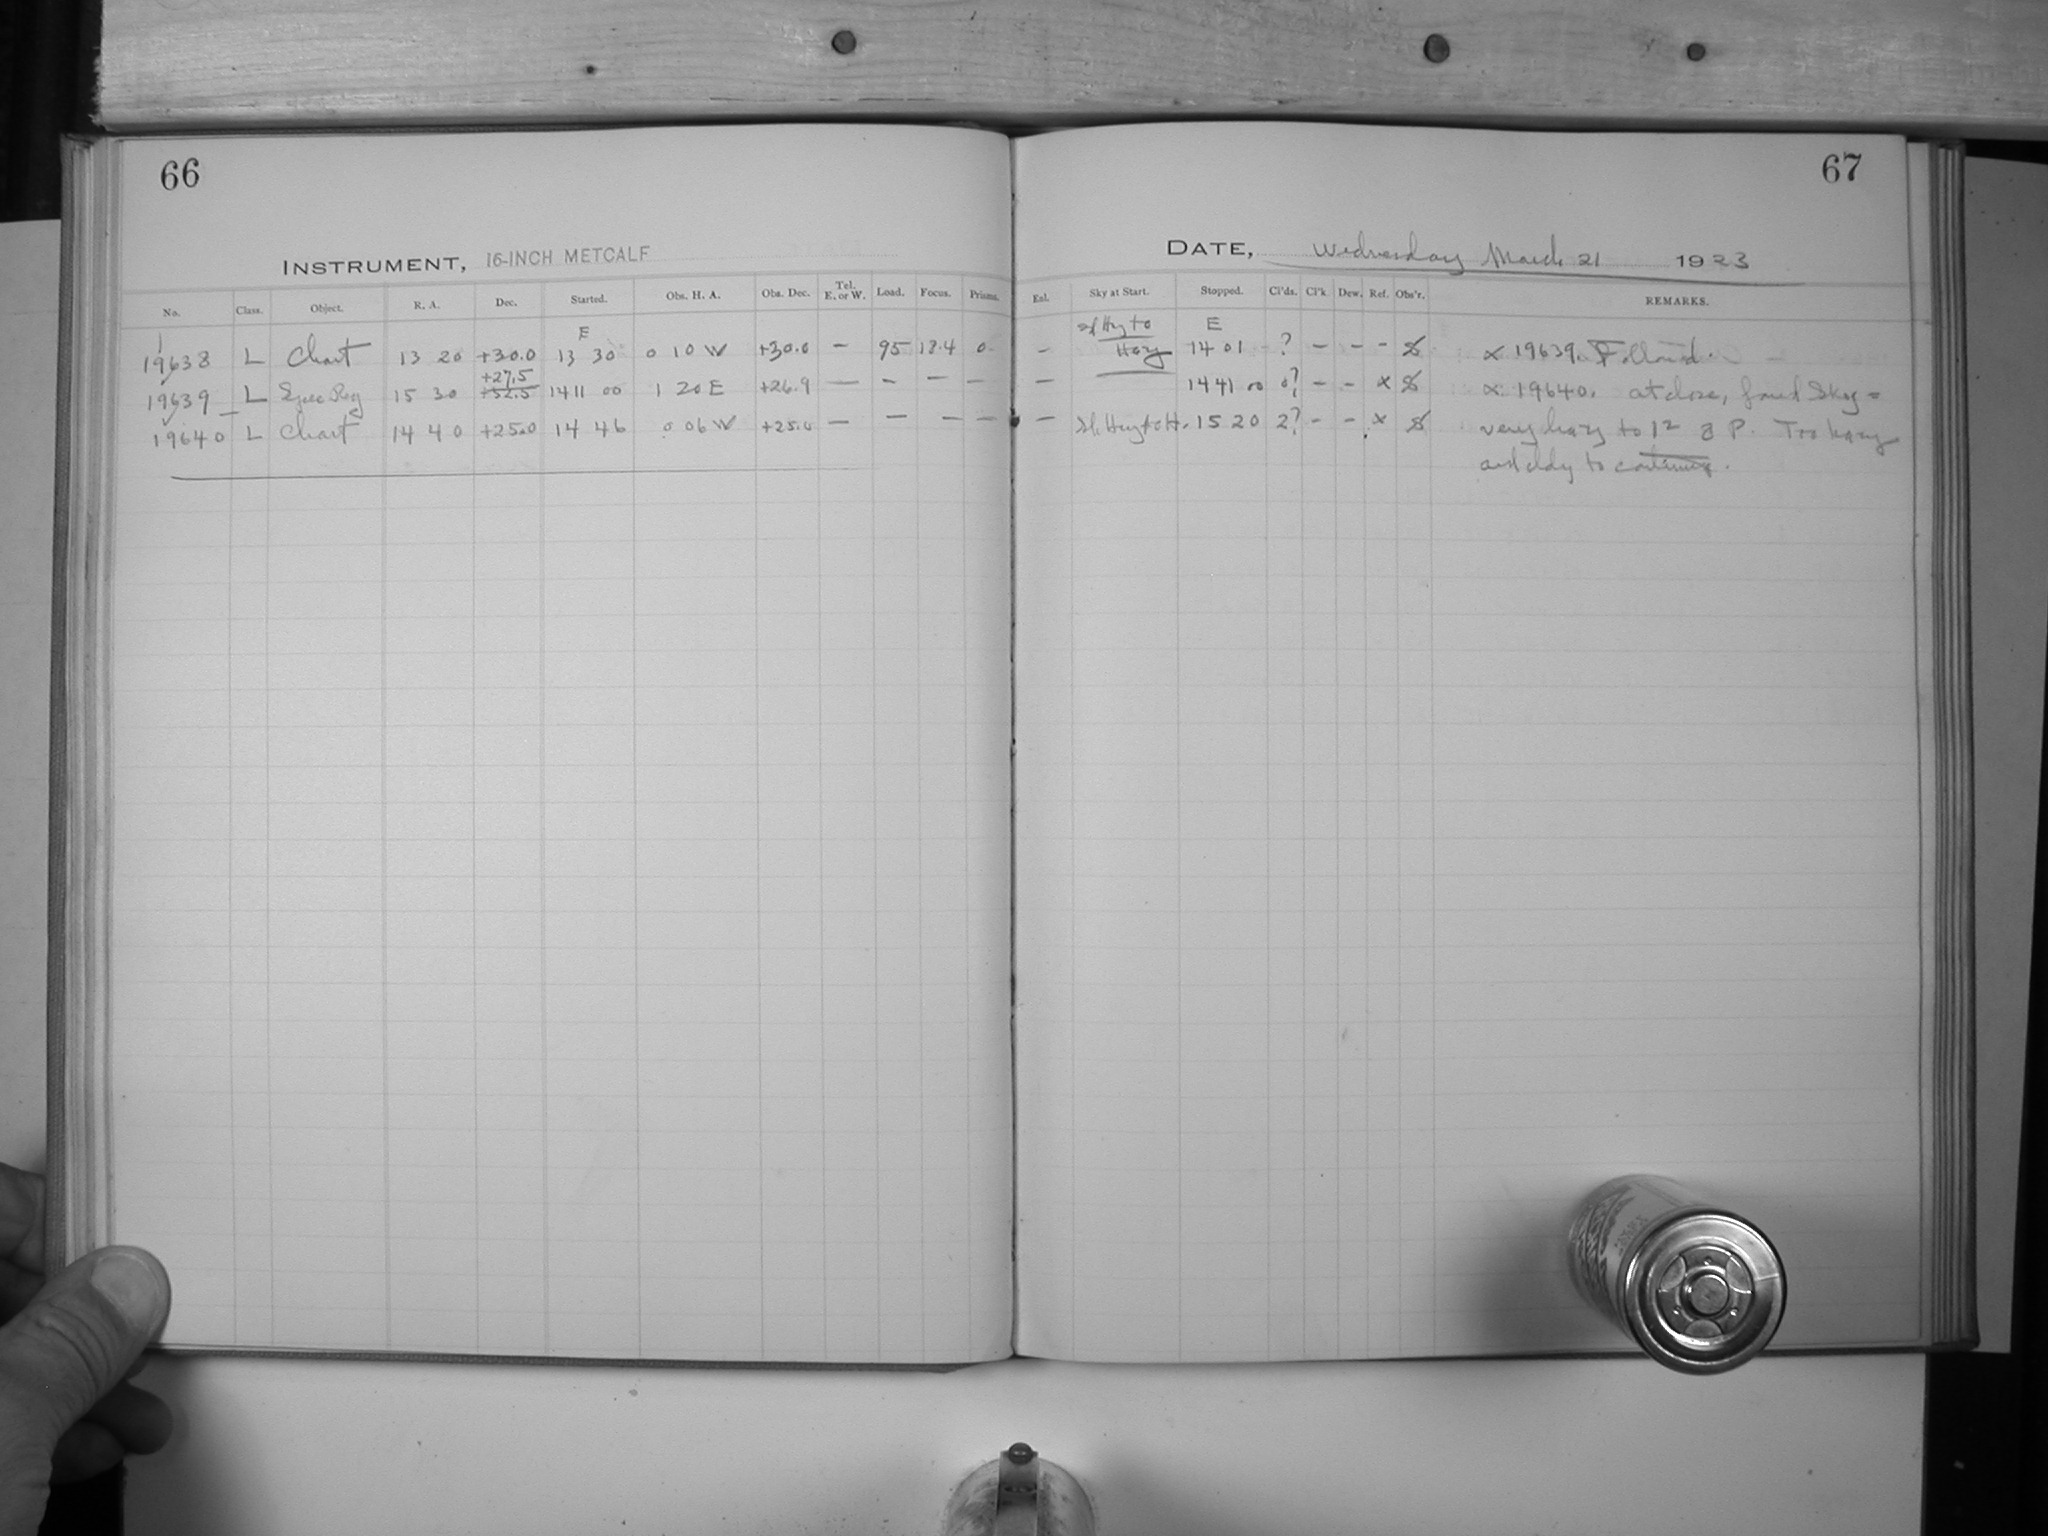 66
67
INSTRUMENT, 16-INCH METCALF
DATE, Wednesday March 21 1923
No. Class. Object. R. A. Dec. Started. Obs. H. A. Obs. Dec. Tel. E. or W. Load. Focus. Prisms. Exl. Sky at Start. Stopped. Cl'ds. Cl'k. Dew. Ref. Obs'r. REMARKS.
E Sl Hzy to E
19638 L Chart 13 20 +30.0 13 30 0 10 W +30.0 — 95 13.4 0 — Hazy 14 01 ? — — —
+27.5
19639 L Spec Reg 15 30 +52.5 14 11 00 1 20 E +26.9 — — — — — 14 41 00 0? — — x
19640 L Chart 14 40 +25.0 14 46 0 06 W +25.0 — — — — — Sl. Hzy to H. 15 20 2? — — x
19639.
19640. at close, found Sky =
very hazy to Too hazy
and cldy to continue.